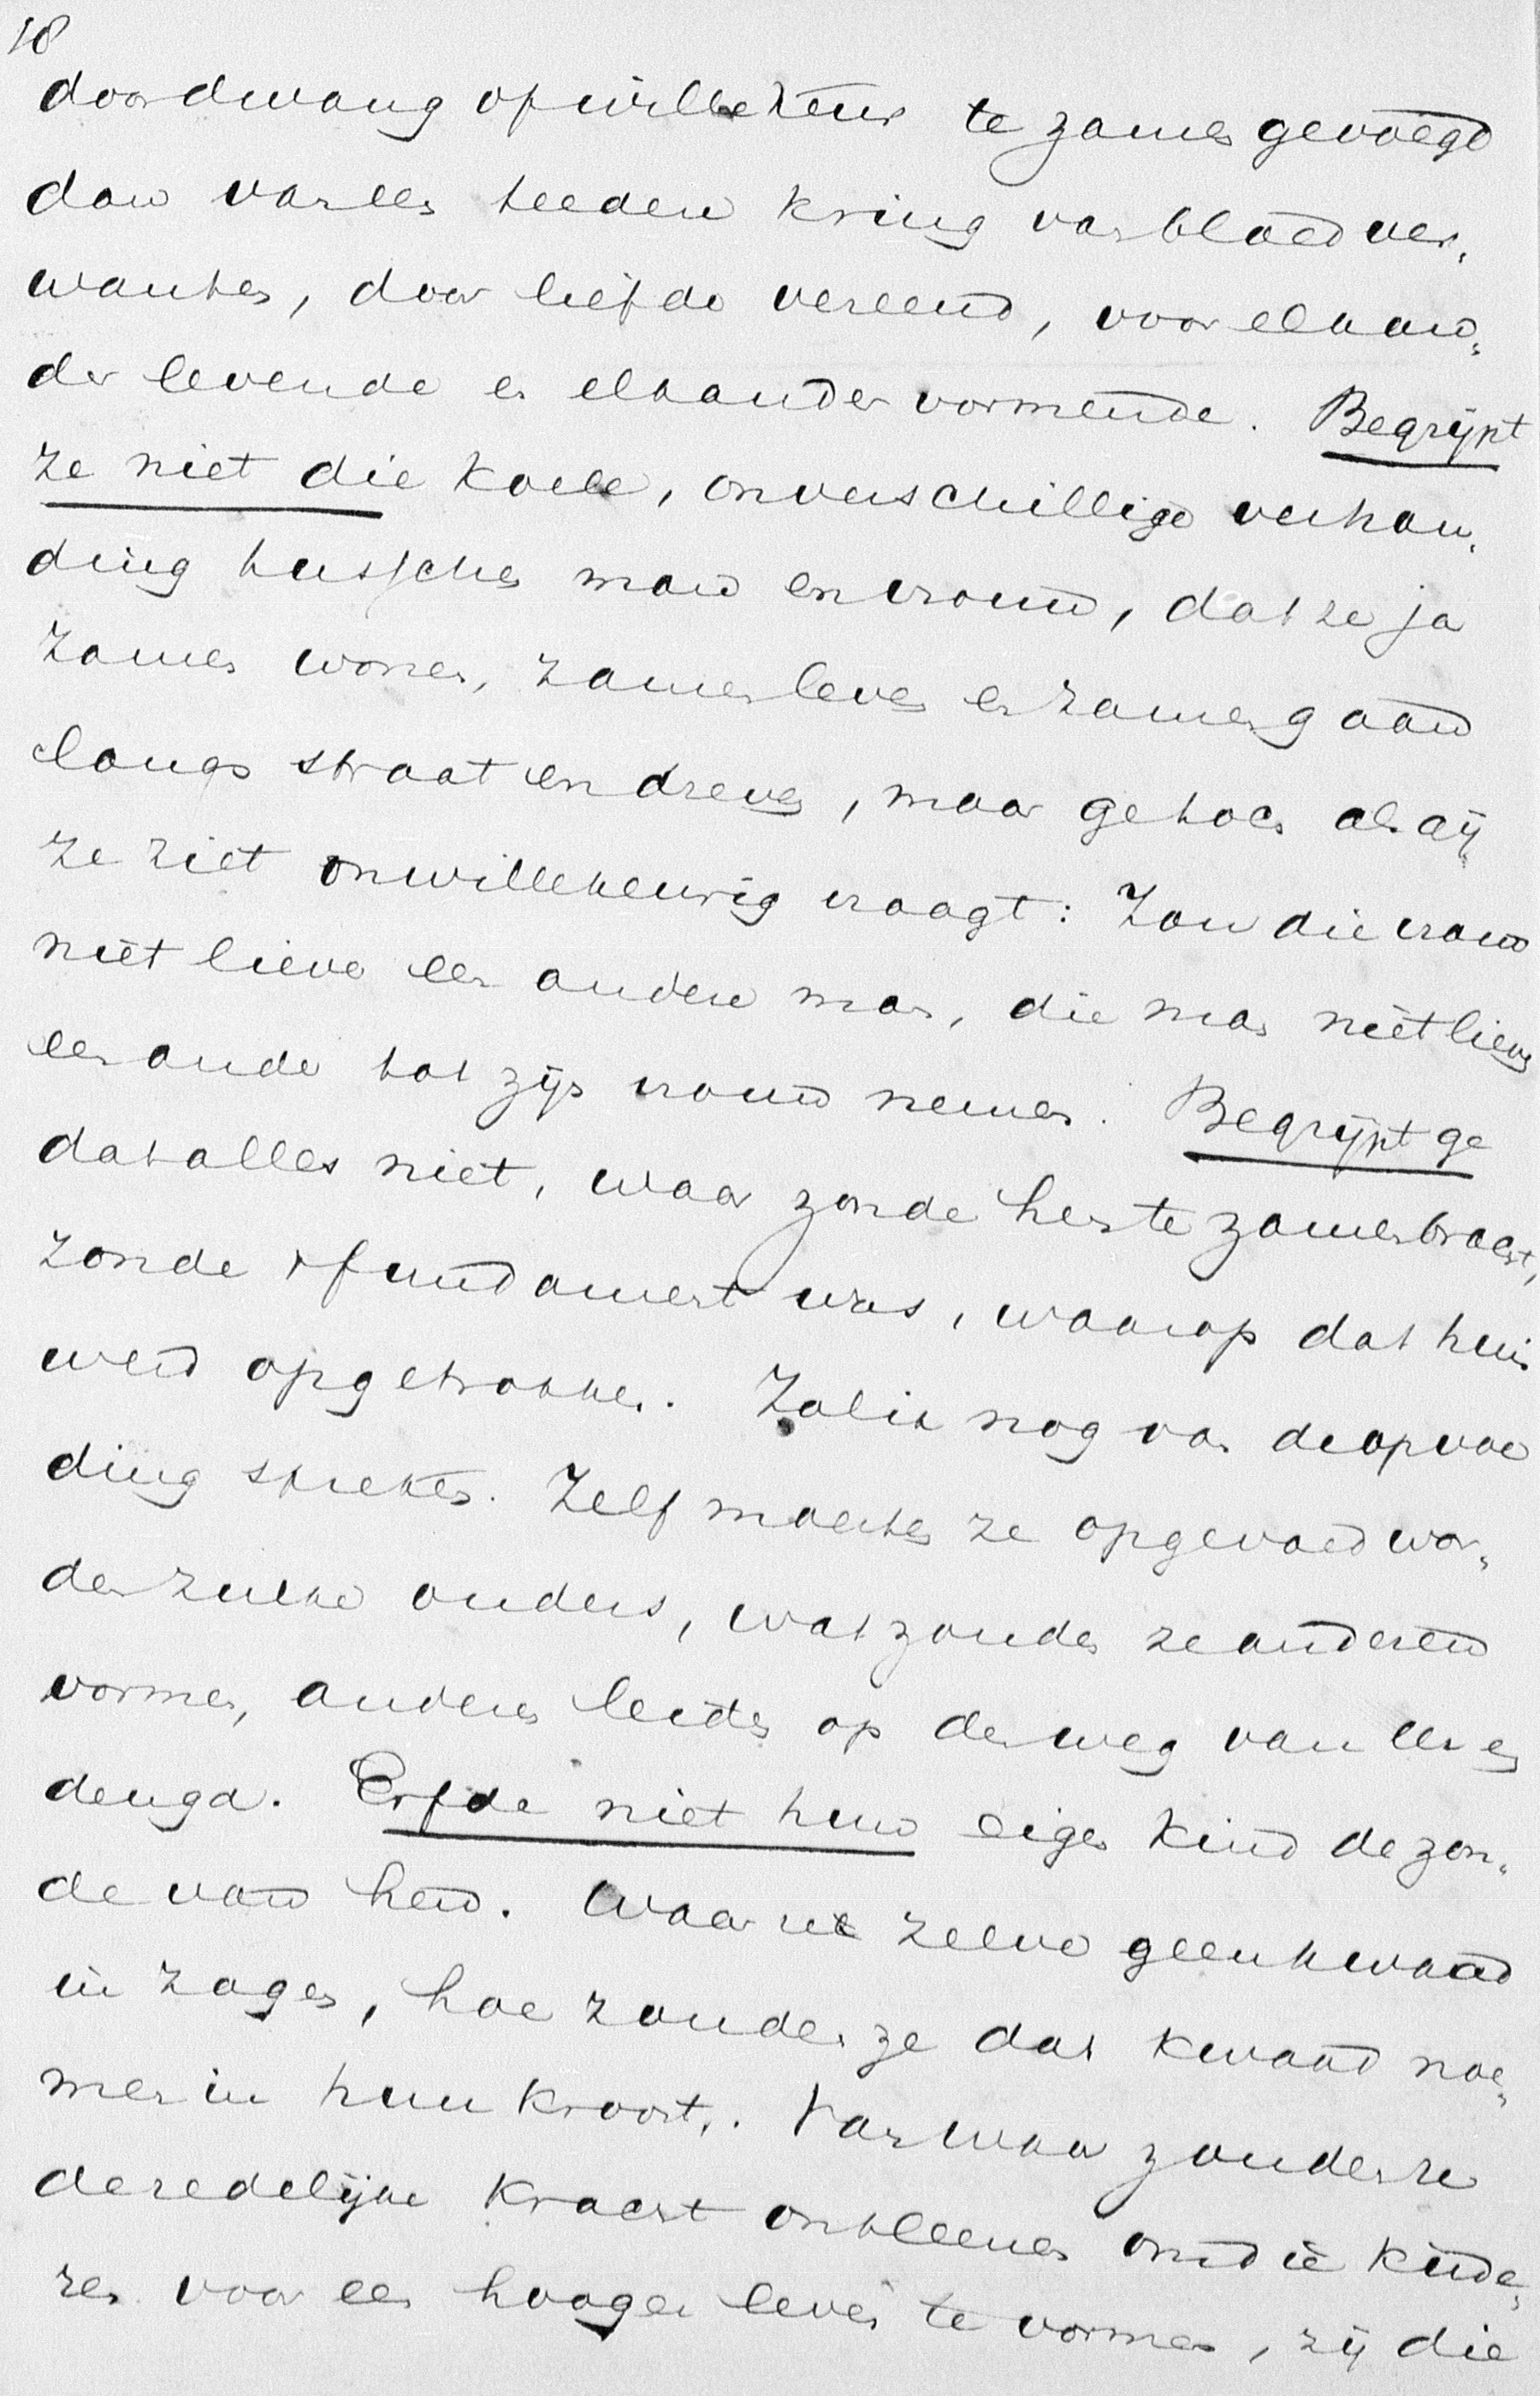 18
door dwang of willekeur te zamen gevoegd
dan van een teederen kring van bloedver„
wanten, door liefde vereend, voor elkan„
der levende en elkander vormende. Begrijpt
ze niet die koele, onverschillige verhou„
ding tusschen man en vrouw, dat ze ja
zamen wonen, zamen leven en zamen gaan
langs straat en dreven, maar toch als gij
ze ziet onwillekeurig vraagt: Zou die vrouw
niet liever een anderen man, die man niet liever
een ander tot zijn vrouw nemen. Begrijpt ge
dat alles niet, waar zonde hen te zamenbracht,
zonde 't fundament was, waarop dat huis
werd opgetrokken. Zal ik nog van de opvoe
ding spreken. Zelf moesten ze opgevoed wor„
den zulke ouders, wat zouden ze anderen
vormen, anderen leiden op den weg van eer en
deugd. Erfde niet hun eigen kind de zon„
de van hen. Waar ze zelve geen kwaad
in zagen, hoe zouden ze dat kwaad noe„
men in hun kroost. Van waar zouden ze
de zedelijke kracht ontleenen om die kinde„
ren voor een hooger leven te vormen, zij die